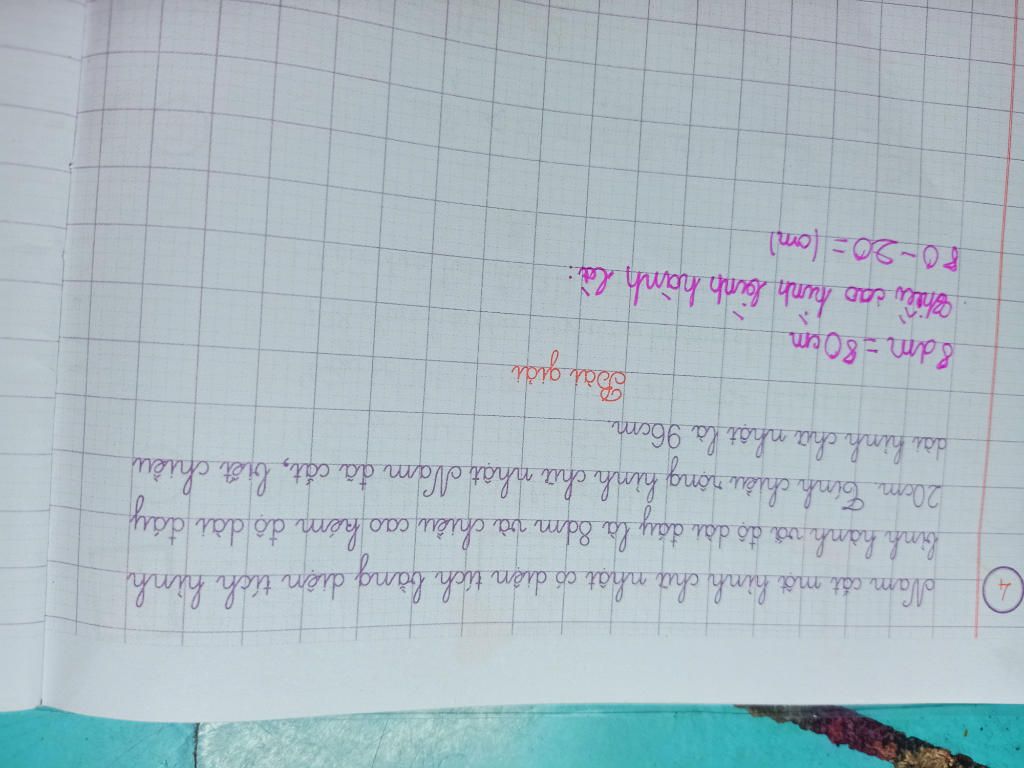 4
Nam cắt một hình chữ nhật có diện tích bằng diện tích hình
bình hành và độ dài đáy là 8dm và chiều cao kém độ dài đáy
20cm. Tính chiều rộng hình chữ nhật Nam đã cắt, biết chiều
dài hình chữ nhật là 96cm
Bài giải
8dm = 80cm
Chiều cao hình bình hành là:
80 - 20 = (cm)